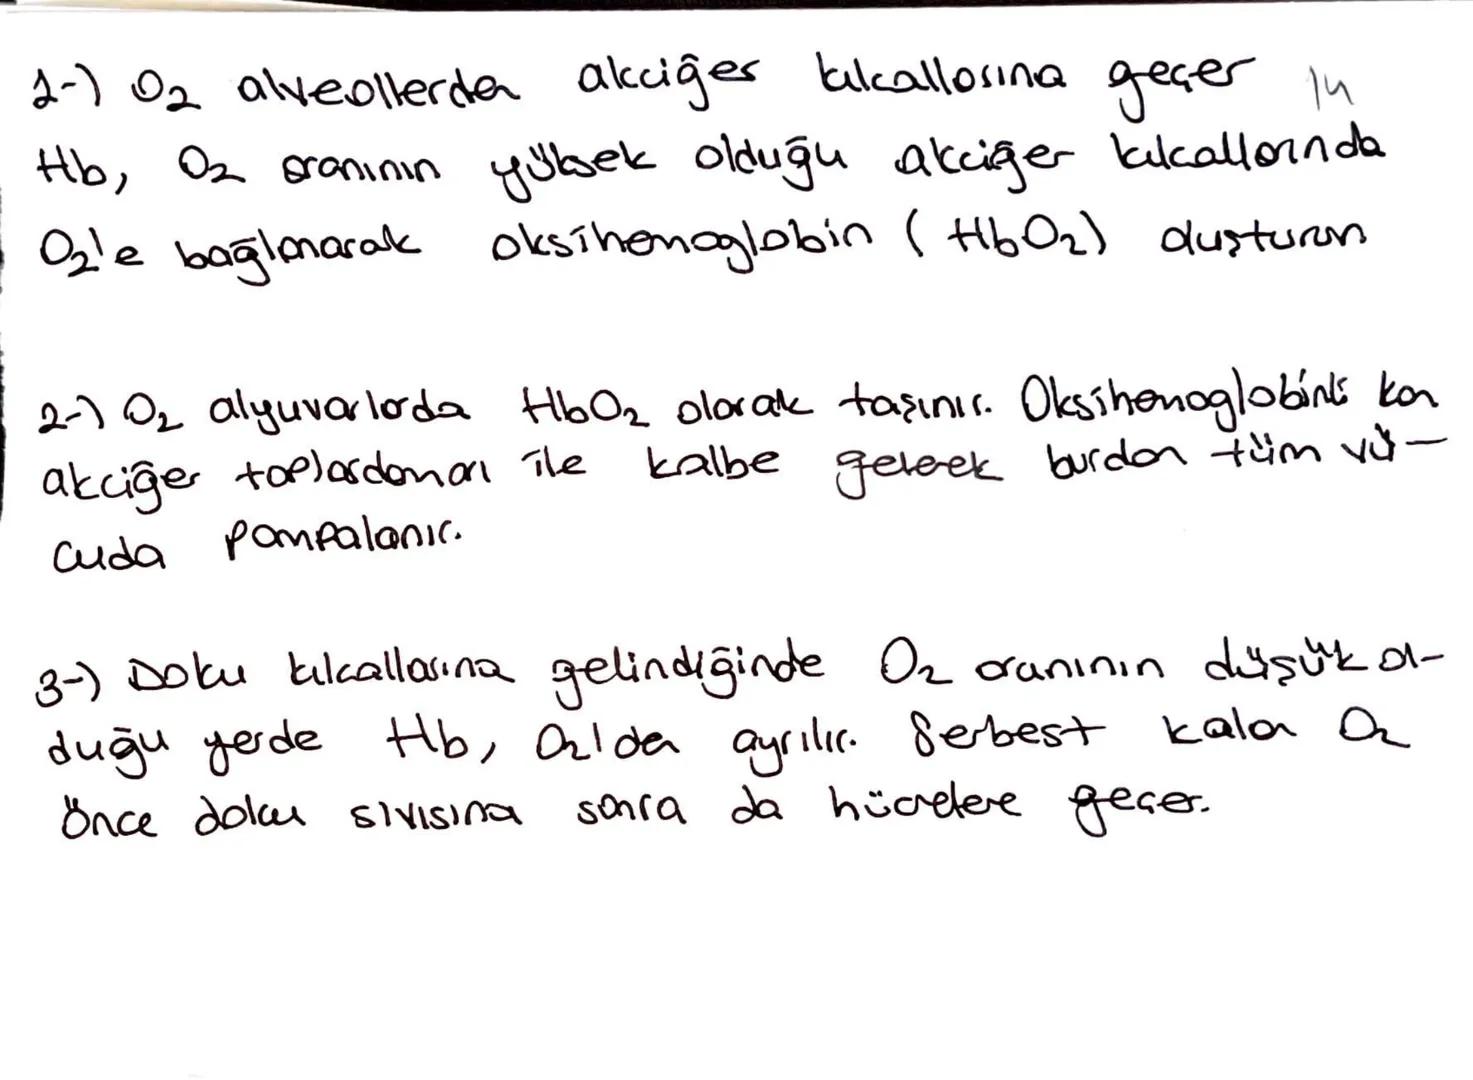 1-) O₂ alveollerden akciğer kılcallarına geçer 14
Hb, O₂ oranının yüksek olduğu akciğer kılcallarında
O₂'e bağlanarak oksihemoglobin (HbO₂) oluşturur
2-) O₂ alyuvarlarda HbO₂ olarak taşınır. Oksihemoglobinli kan
akciğer toplardamarı ile kalbe gelerek burdan tüm vü-
cuda pompalanır.
3-) Doku kılcallarına gelindiğinde O₂ oranının düşük ol-
duğu yerde Hb, O₂'den ayrılır. Serbest kalan O₂
önce doku sıvısına sonra da hücrelere geçer.